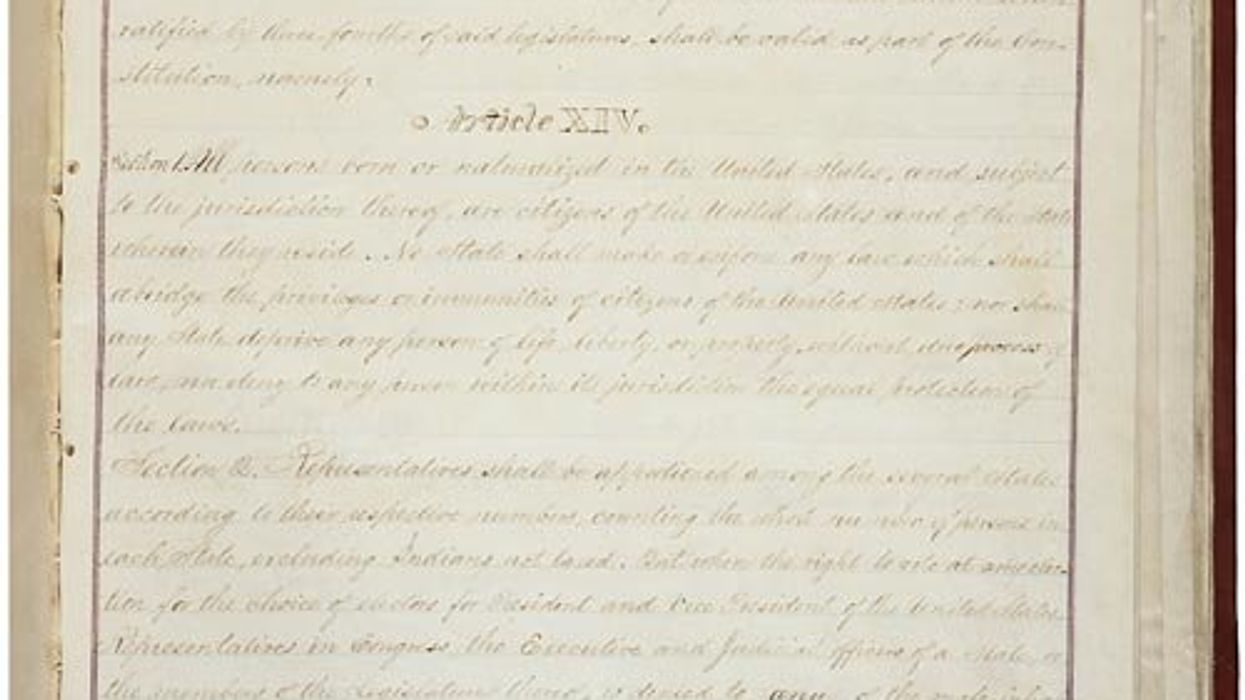 ratified by three-fourths of said legislatures, shall be valid as part of the Con-
stitution, namely:
Article XIV.
Section 1. All persons born or naturalized in the United States, and subject
to the jurisdiction thereof, are citizens of the United States and of the State
wherein they reside. No State shall make or enforce any law which shall
abridge the privileges or immunities of citizens of the United States; nor shall
any State deprive any person of life, liberty, or property, without due process of
law, nor deny to any person within its jurisdiction the equal protection of
the laws.
Section 2. Representatives shall be apportioned among the several States
according to their respective numbers, counting the whole number of persons in
each State, excluding Indians not taxed. But when the right to vote at any elec-
tion for the choice of electors for President and Vice President of the United States,
Representatives in Congress, the Executive and Judicial officers of a State, or
the members of the Legislature thereof, is denied to any of the male